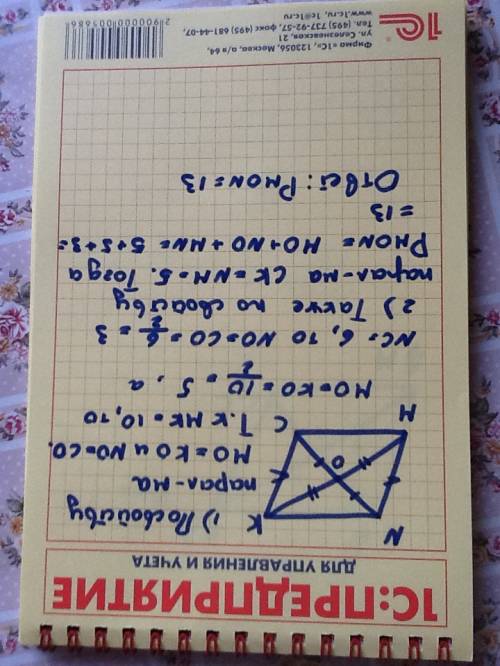 1С:ПРЕДПРИЯТИЕ
ДЛЯ УПРАВЛЕНИЯ И УЧЕТА
N
K
O
M
C
1) По свойству
парал-ма
MO=KO и NO=CO.
Т.к MK=10, то
MO=KO=10/2=5, а
NC=6, то NO=CO=6/2=3
2) Также по свойству
парал-ма CK=NM=5. Тогда
PMON= MO+NO+MN=5+5+3=
=13
Ответ: PMON=13
Фирма «1С», 123056, Москва, а/я 64,
ул. Селезневская, 21
Тел. (495) 737-92-57, факс (495) 681-44-07,
www.1c.ru, 1c@1c.ru
1С